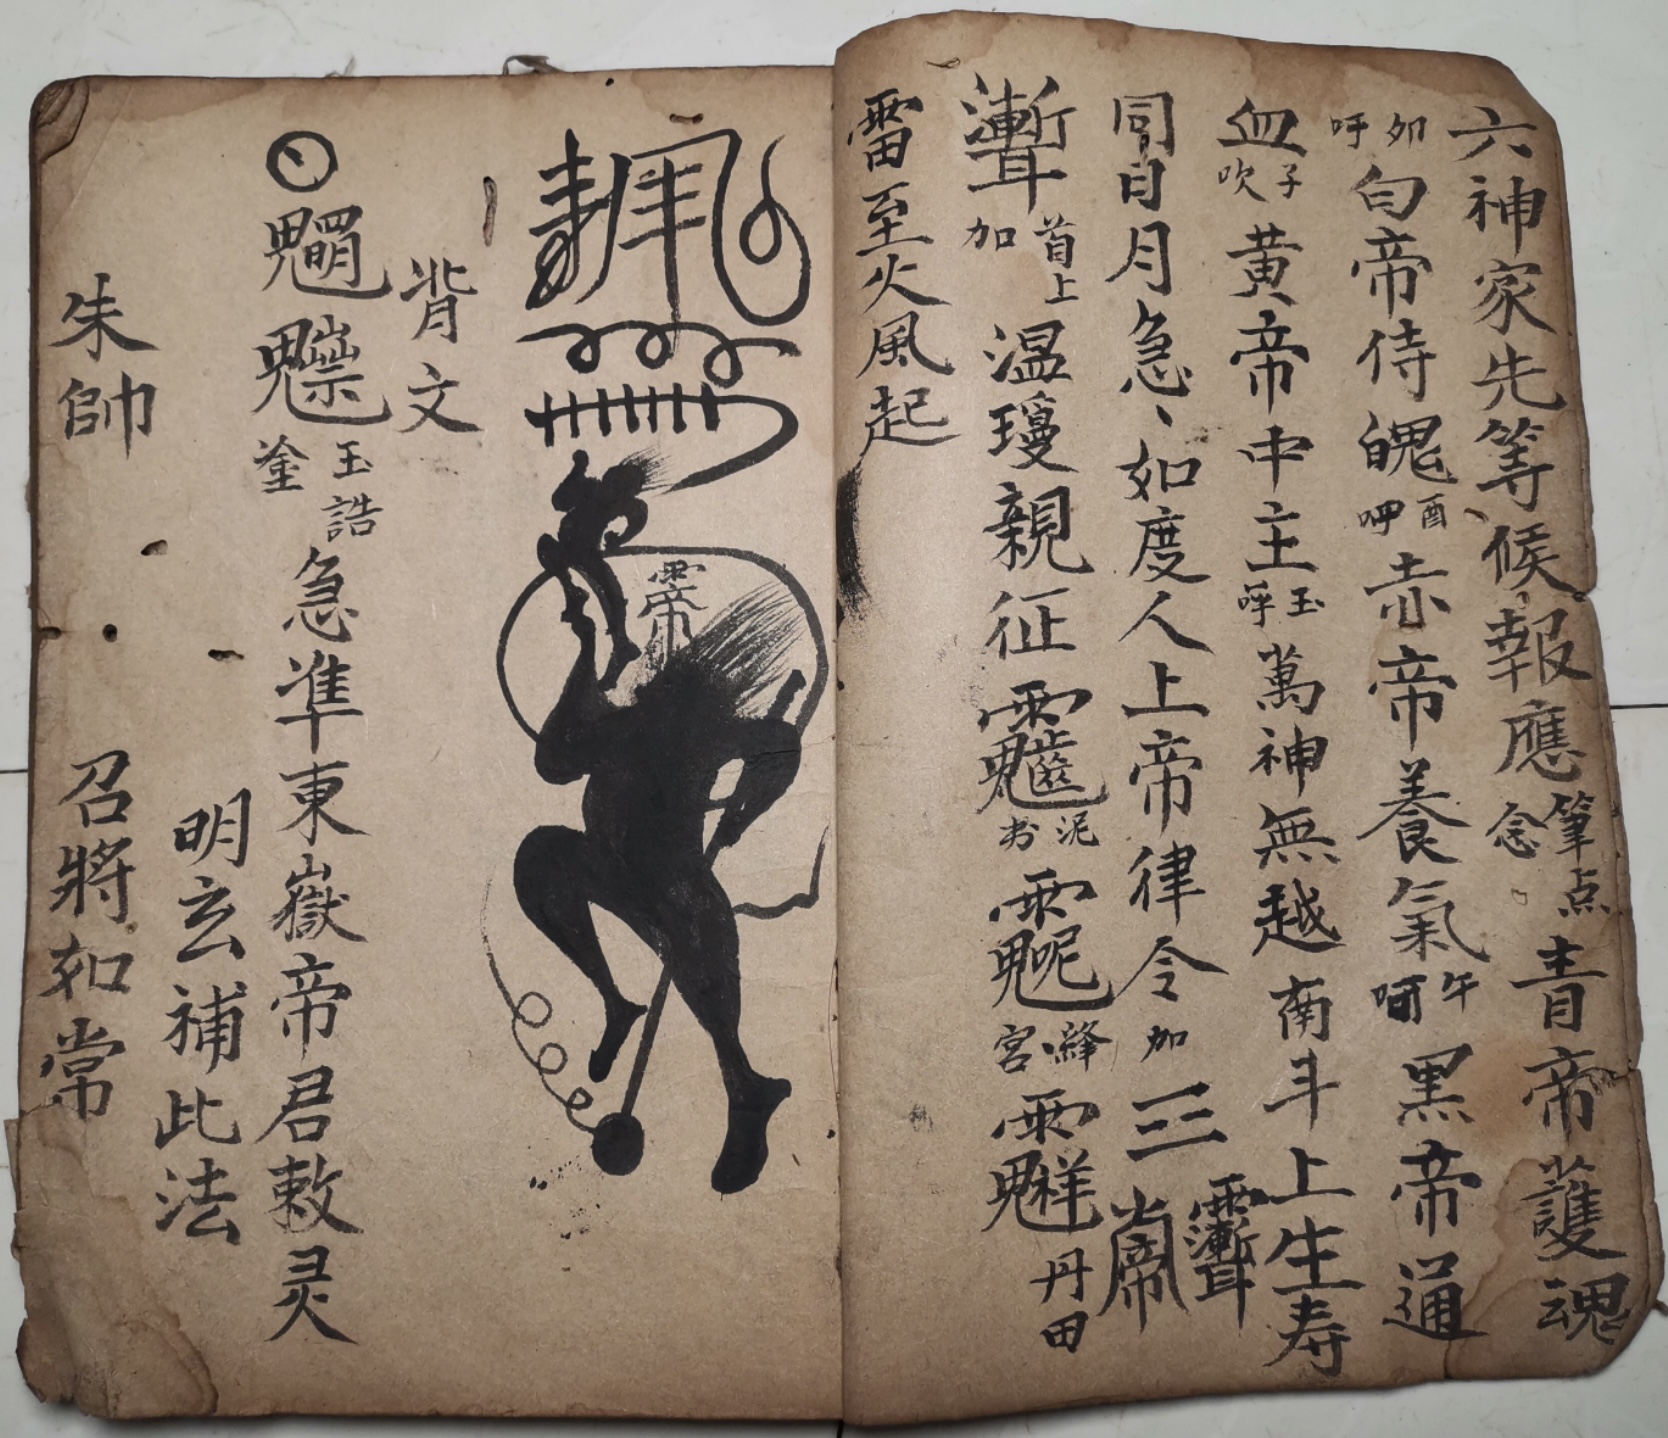 六神家先等候報應筆点念青帝護魂
卯呼白帝侍魄酉呷赤帝養氣午呵黑帝通
血子吹黃帝中主玉呼萬神無越南斗上生寿
同日月急、如度人上帝律令加三
首上加温瓊親征泥宮丹田
雷至火風起
背文
玉誥急準東嶽帝君敕灵
明玄補此法
朱帥召將如常